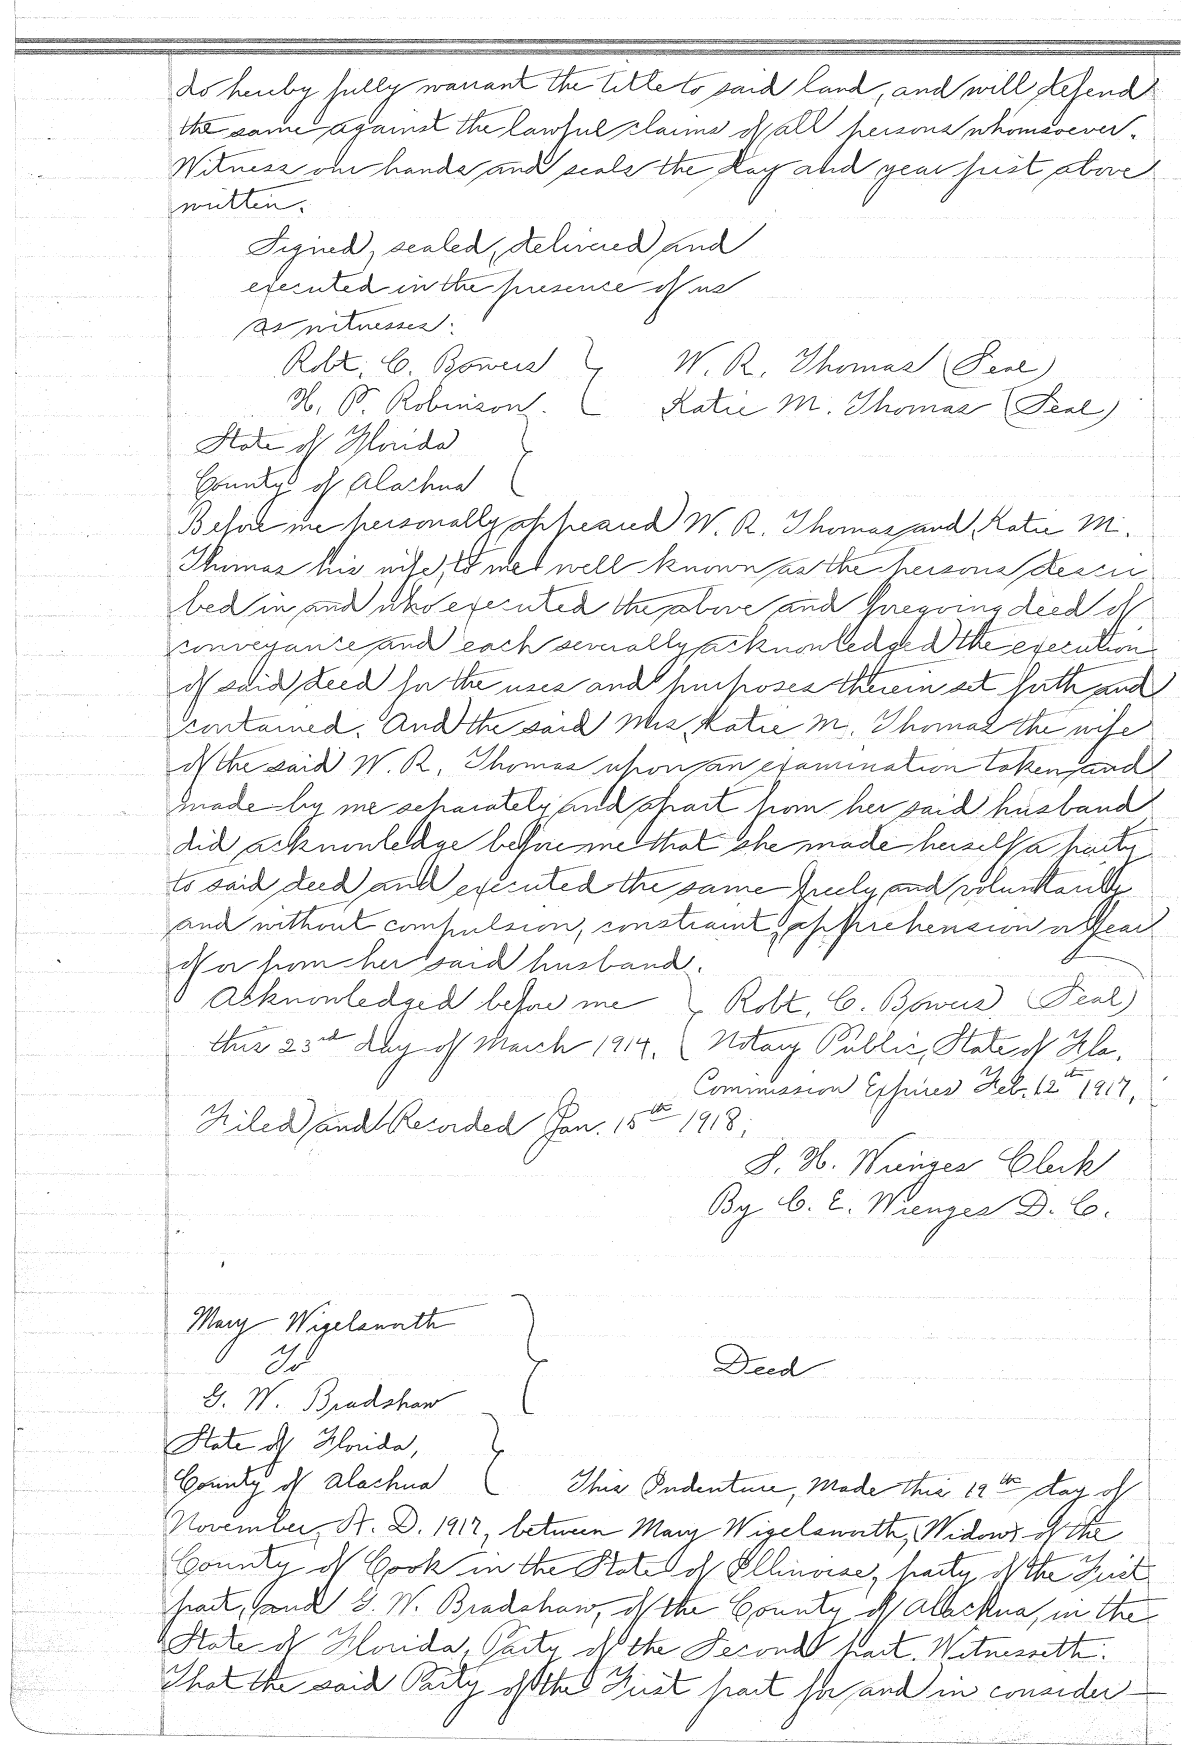 do hereby fully warrant the title to said land, and will defend
the same against the lawful claims of all persons whomsoever.
Witness our hands and seals the day and year first above
written.
Signed, sealed, delivered and
executed in the presence of us
as witnesses:
Robt. C. Bowers } W. R. Thomas (Seal)
H. P. Robinson. { Katie M. Thomas (Seal)
State of Florida }
County of Alachua {
Before me personally appeared W. R. Thomas and Katie M.
Thomas his wife, to me well known as the persons descri
bed in and who executed the above and foregoing deed of
conveyance and each severally acknowledged the execution
of said deed for the uses and purposes therein set forth and
contained. And the said Mrs. Katie M. Thomas the wife
of the said W. R. Thomas upon an examination taken and
made by me separately and apart from her said husband
did acknowledge before me that she made herself a party
to said deed and executed the same freely and voluntarily
and without compulsion, constraint, apprehension or fear
of or from her said husband.
Acknowledged before me } Robt. C. Bowers (Seal)
this 23rd day of March 1914. { Notary Public, State of Fla.
Commission Expires Feb. 12th 1917.
Filed and Recorded Jan. 15th 1918;
S. H. Wienges Clerk
By C. E. Wienges D. C.
Mary Wigelsworth }
To Deed
G. W. Bradshaw {
State of Florida, }
County of Alachua { This Indenture, Made this 19th day of
November, A. D. 1917, between Mary Wigelsworth, Widow, of the
County of Cook in the State of Illinoise, party of the First
part, and G. W. Bradshaw, of the County of Alachua, in the
State of Florida, Party of the Second part. Witnesseth:
That the said Party of the First part for and in consider-